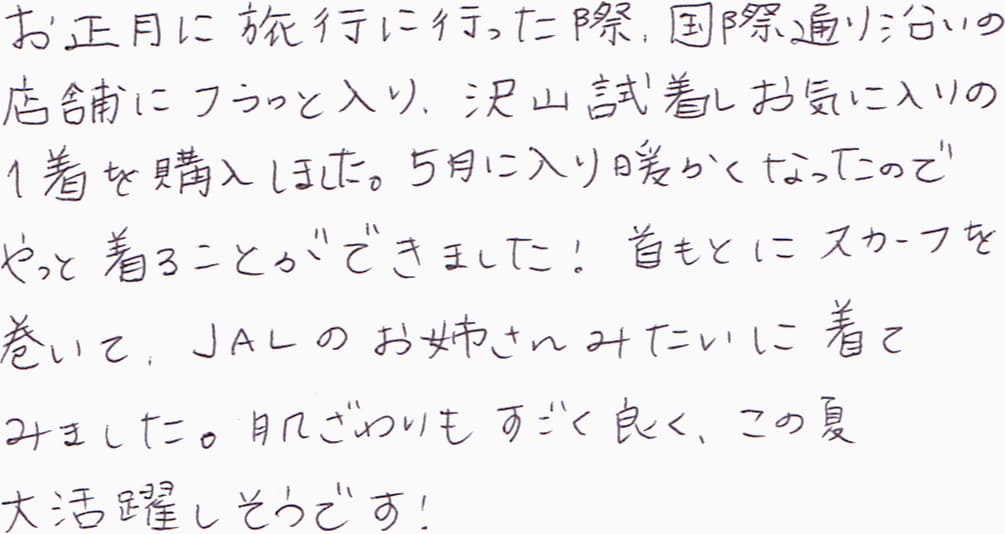 お正月に旅行に行った際、国際通り沿いの
店舗にフラっと入り、沢山試着しお気に入りの
1着を購入しました。5月に入り暖かくなったので
やっと着ることができました！首もとにスカーフを
巻いて、JALのお姉さんみたいに着て
みました。肌ざわりもすごく良く、この夏
大活躍しそうです！